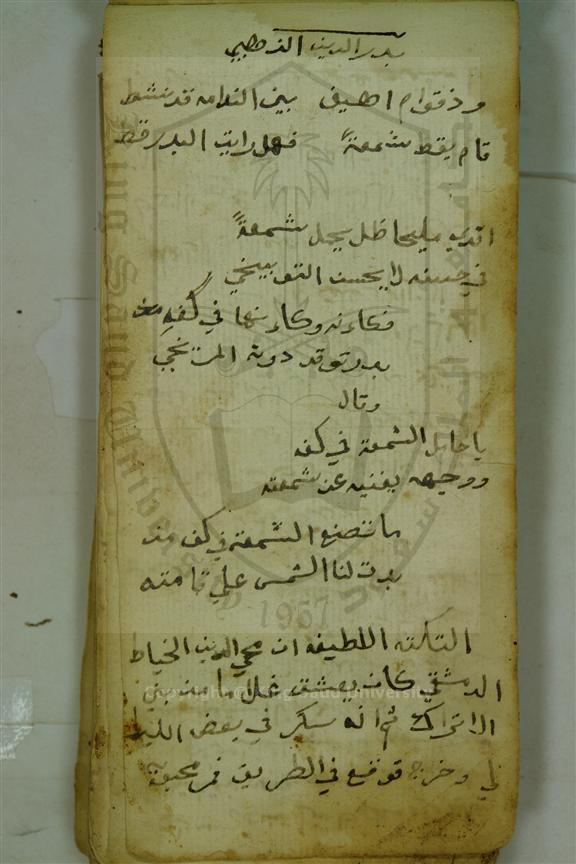 بدر الدين الذهبي
وذ قوام اهيف بين الندامه قد نشط
قام يقط شمعة فهل رايت البدر قط
افدي مليحا ظل يحمل شمعة
في حسنه لا يحسن التوبيخي
فكانه وكانها في كفه
بدر توقد دونه المريخي
وقال
يا حامل الشمعة في كفه
ووجهه يغنيه عن شمعته
ما تصنع الشمعة في كف من
بدت لنا الشمس علي قامته
النكته اللطيفه ان محي الدين الخياط
الدمشقي كان يعشق غلاما من
الاتراك ثم انه سكر في بعض الليا
لي وخرج فوقع في الطريق فمر محبوبه
1957
Copyright © King Saud University